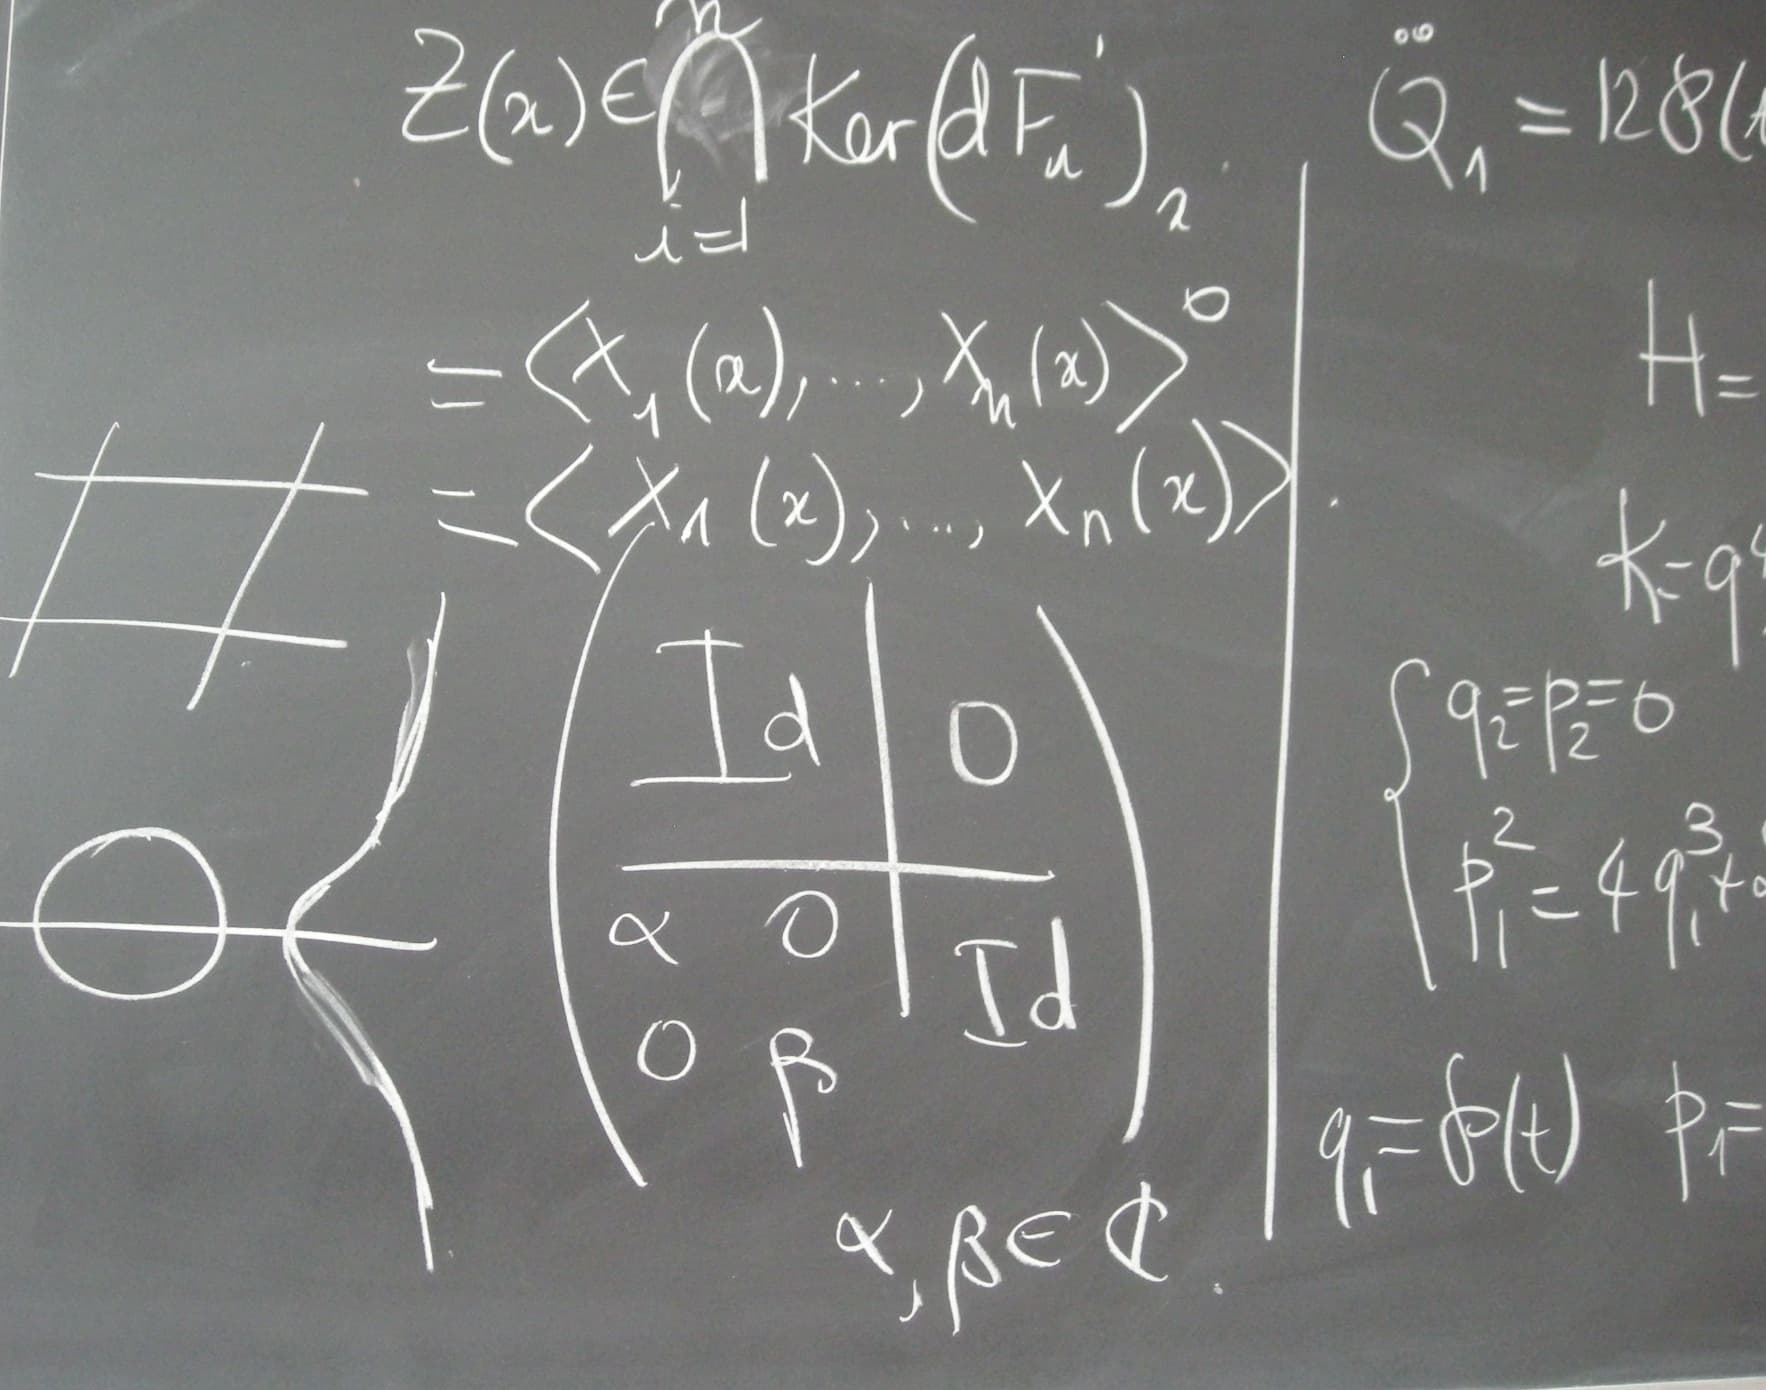 Z(x) ∈ ⋂_{i=1}^{n} Ker(dF_i)_x.
= <X_1(x), ..., X_n(x)>^0
= <X_1(x), ..., X_n(x)>.
Id | 0
α 0 | Id
0 β
α, β ∈ ℂ.
Q̈_1 = 128(
H =
K = q
{ q_2 = p_2 = 0
p_1^2 = 4q_1^3 +
q_1 = ℘(t) p_1 =